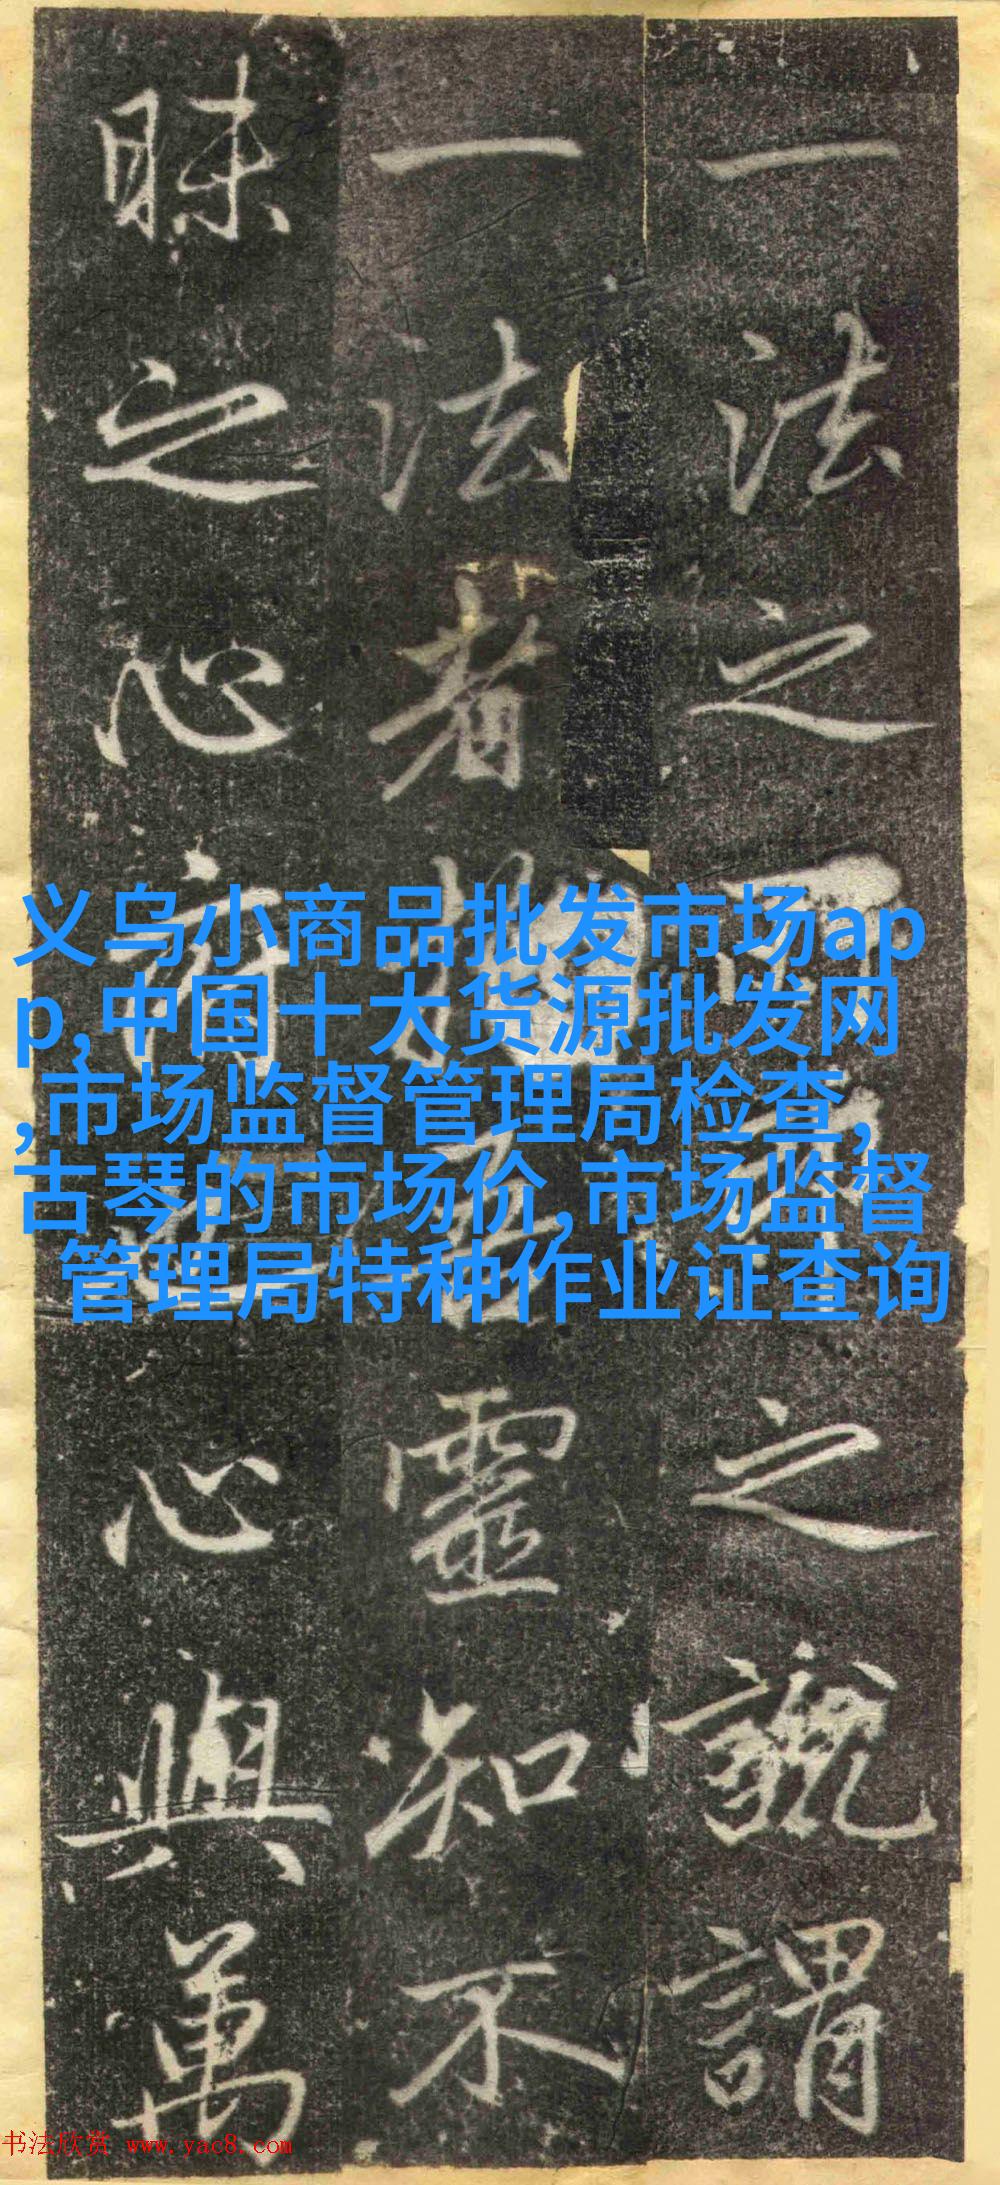 一法之之謂
一法者靈知不
昧之心心與萬
义乌小商品批发市场ap
p,中国十大货源批发网
,市场监督管理局检查,
古琴的市场价,市场监督
管理局特种作业证查询
书法欣赏 www.yac8.com